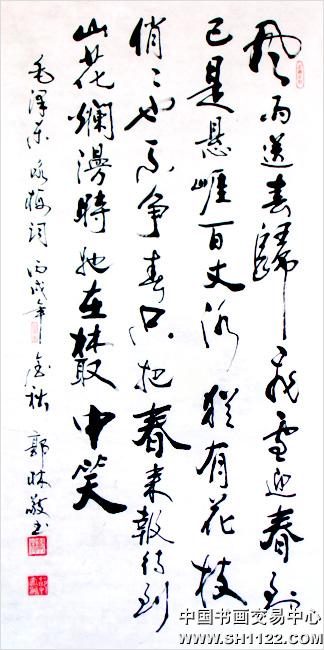 風雨送春歸飛雪迎春到
已是懸崖百丈冰猶有花枝
俏〻也不争春只把春来報待到
山花爛漫時她在叢中笑
毛澤东咏梅詞 丙戌年金秋 郭林书
中国书画交易中心
www.SH1122.com